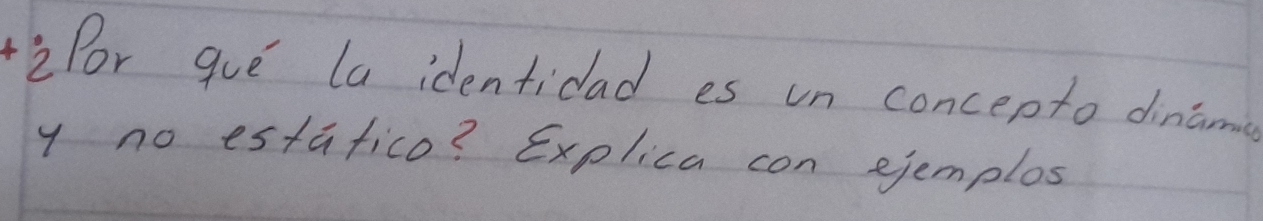 +¿Por qué la identidad es un concepto dinámico
y no estático? Explica con ejemplos